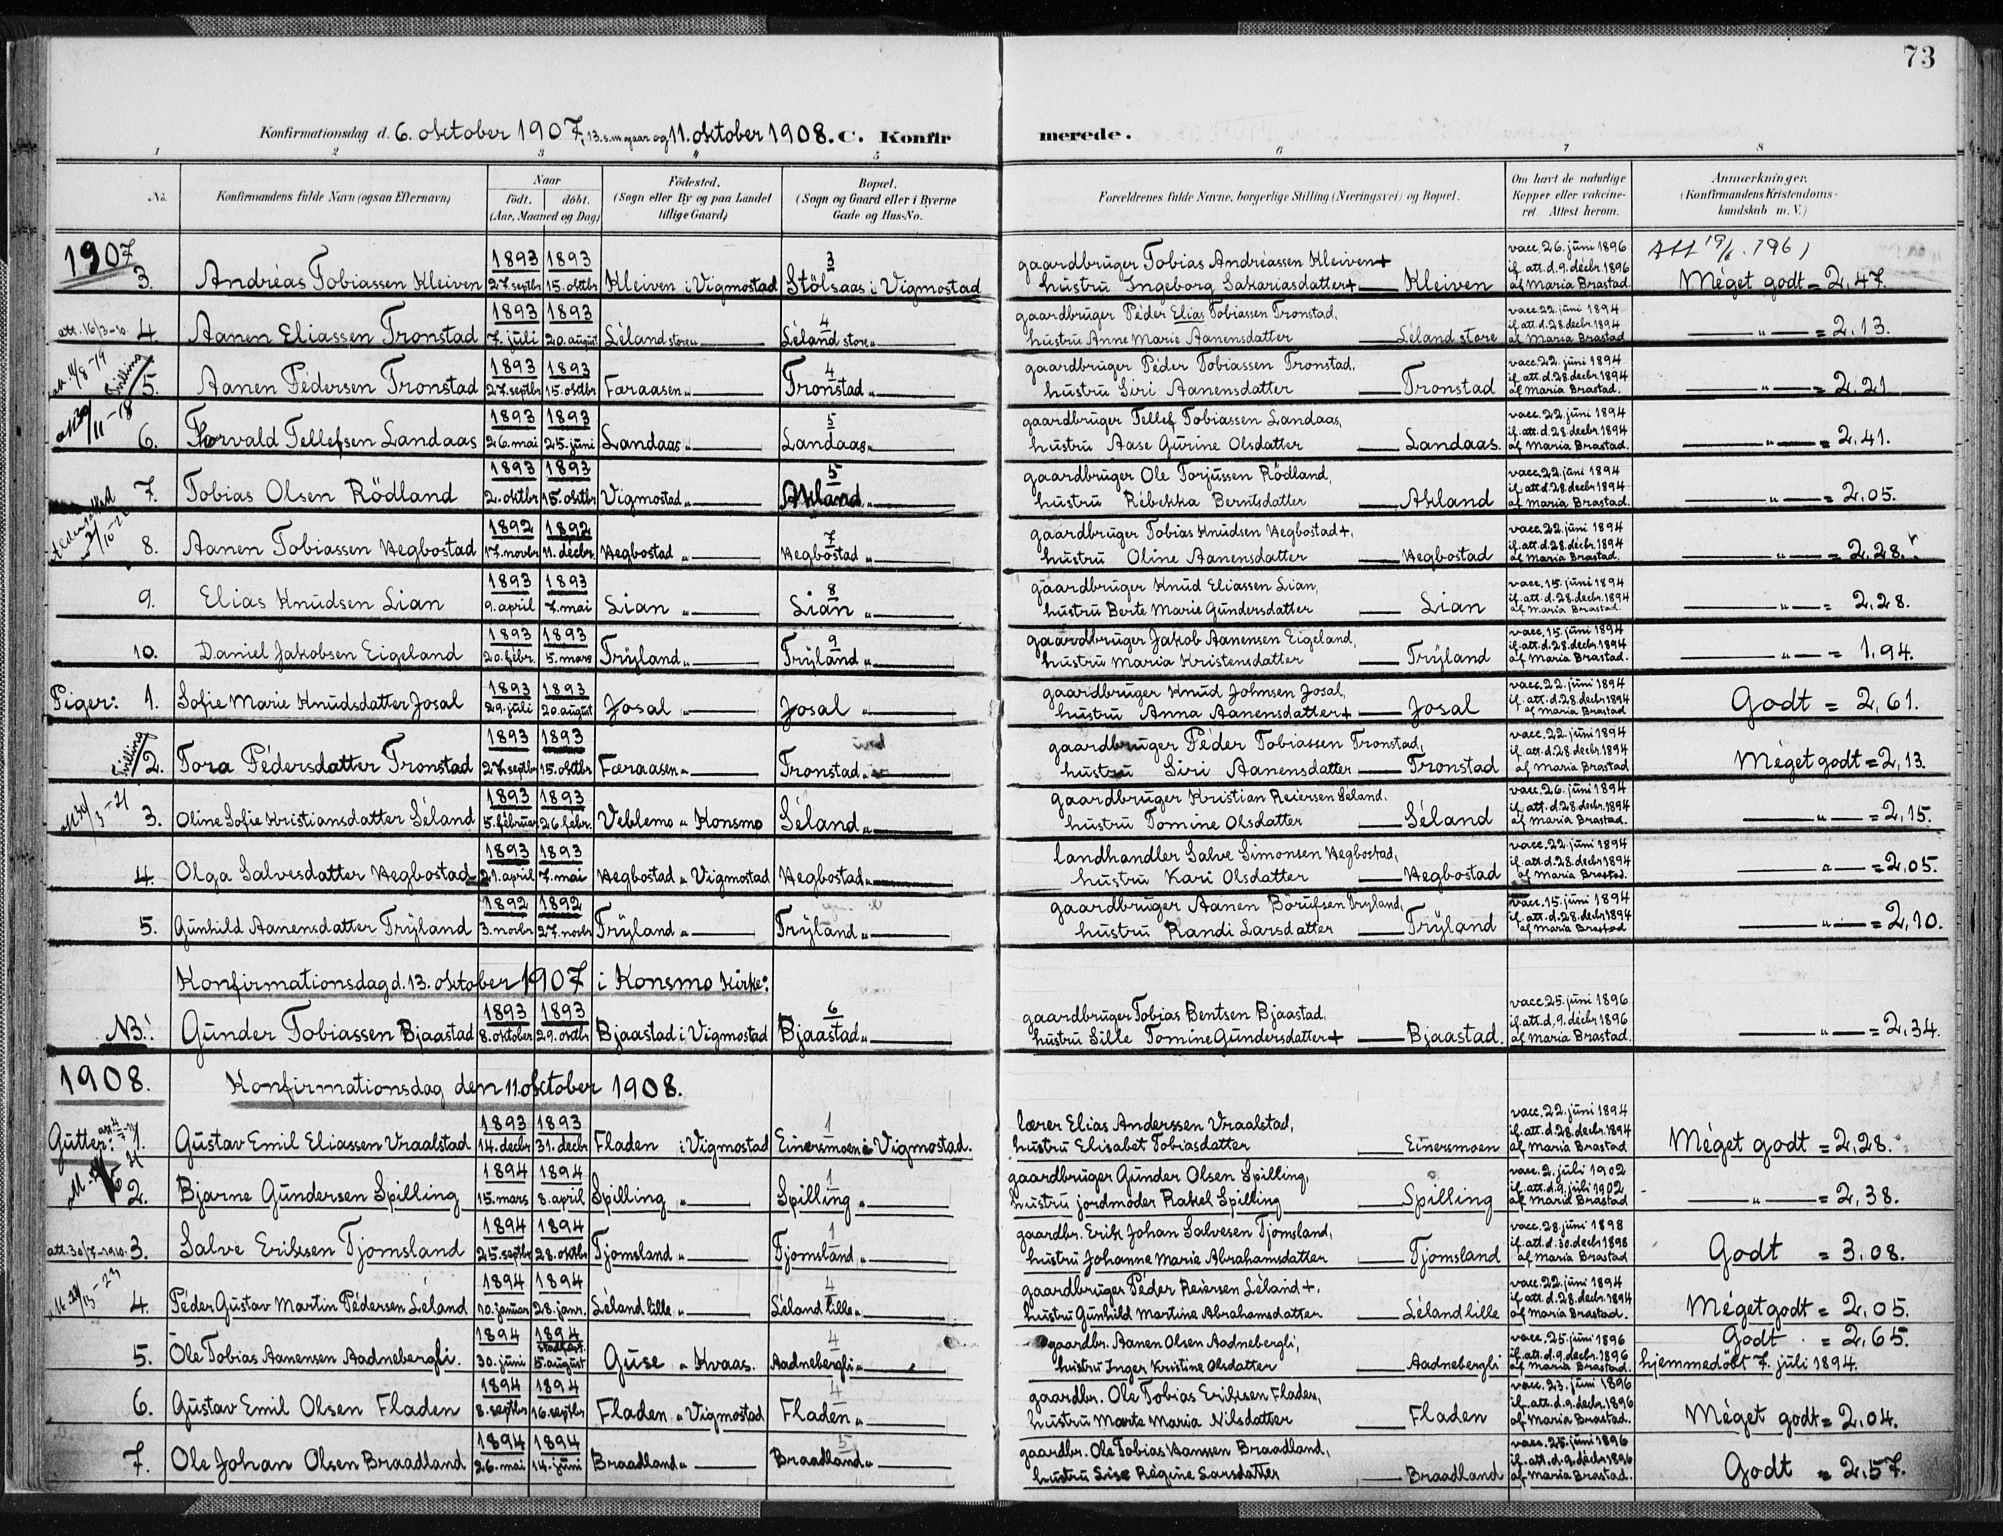 73
Konfirmationsdag d. 6. oktober 1907, 13. s.m. og 11. oktober 1908. C. Konfirmerede.
1 2 3 4 5 6 7 8
No. Konfirmandens fulde Navn (ogsaa Efternavn) Naar født. døbt. (Aar, Maaned og Dag) Fødested. (Sogn eller By og paa Landet tillige Gaard) Bopæl. (Sogn og Gaard eller i Byerne Gade og Hus-No. Forældrenes fulde Navne, borgerlige Stilling (Næringsvei) og Bopæl. Om havt de naturlige Kopper eller vakcineret. Attest herom. Anmærkninger. (Konfirmandens Kristendomskundskab m. V.)
1907 1893 1893 3 gaardbruger Tobias Andréassen Kleiven + vacc. 26. juni 1896 Att 1961
3. Andréas Tobiassen Kleiven 27. septbr 15. oktbr Kleiven i Vigmostad Stölsaas i Vigmostad hustru Ingeborg Sakariasdatter + — Kleiven if. att. d. 9. decbr. 1896 af Maria Brastad. Méget godt = 2,47.
1893 1893 4 gaardbruger Péder Elias Tobiassen Tronstad, vacc. 22. juni 1894
att. 16/3-10. 4. Aanen Eliassen Tronstad 7. juli 20. august Léland store " Léland store " hustru Anne Marie Aanensdatter — Léland store if. att. d. 28. decbr. 1894 af Maria Brastad — " — = 2,13.
1893 1893 4 gaardbruger Péder Tobiassen Tronstad, vacc. 22. juni 1894
Tvilling 5. Aanen Pédersen Tronstad 27. septbr 15. oktbr Faraasen " — Tronstad " hustru Siri Aanensdatter — Tronstad if. att. d. 28. decbr. 1894 af Maria Brastad. — " — = 2,21
1893 1893 5 gaardbruger Tellef Tobiassen Landaas, vacc. 22. juni 1894
6. Torvald Tellefsen Landaas 26. mai 25. juni Landaas " — Landaas " — hustru Aase Gurine Olsdatter — Landaas. if. att. d. 28. decbr. 1894 af Maria Brastad. — " — = 2,41.
1893 1893 5 gaardbruger Ole Torjussen Rödland, vacc. 22. juni 1894
7. Tobias Olsen Rödland 2. oktbr 15. oktbr Vigmostad " — Akland " — hustru Rébekka Berntsdatter — Akland if. att. d. 28. decbr. 1894 af Maria Brastad. — " — = 2,05.
1892 1892 7 gaardbruger Tobias Knudsen Hegbostad +, vacc. 22. juni 1894
8. Aanen Tobiassen Hegbostad 17. novbr 11. decbr. Hegbostad " — Hegbostad " — hustru Oline Aanensdatter — Hegbostad if. att. d. 28. decbr. 1894 af Maria Brastad. — " — = 2,28.
1893 1893 8 gaardbruger Knud Eliassen Lian, vacc. 15. juni 1894
9. Elias Knudsen Lian 9. april 7. mai Lian " — Lian " — hustru Berte Marie Gundersdatter — Lian if. att. d. 28. decbr. 1894 af Maria Brastad. — " — = 2,28.
1893 1893 9 gaardbruger Jakob Aanensen Eigeland, vacc. 15. juni 1894
10. Daniel Jakobsen Eigeland 20. febr. 5. mars Trÿland " — Trÿland " — hustru Maria Kristensdatter — Trÿland if. att. d. 28. decbr. 1894 af Maria Brastad. — " — = 1,94.
1893 1893 gaardbruger Knud Johnsen Josal, vacc. 22. juni 1894
Piger: 1. Sofie Marie Knudsdatter Josal 29. juli 20. august Josal " — Josal " — hustru Anna Aanensdatter + — Josal if. att. d. 28. decbr. 1894 af Maria Brastad Godt = 2,61.
1893 1893 gaardbruger Péder Tobiassen Tronstad, vacc. 22. juni 1894
Tvilling 2. Tora Pédersdatter Tronstad 27. septbr 15. oktbr Færaasen " — Tronstad " — hustru Siri Aanensdatter — Tronstad if. att. d. 28. decbr. 1894 af Maria Brastad Méget godt = 2,13.
1893 1893 gaardbruger Kristian Reiersen Séland. vacc. 26. juni 1894
3. Oline Sofie Kristiansdatter Séland 5. februar 26. febr. Veblemo " Konsmo Séland " — hustru Tomine Olsdatter — Séland if. att. d. 28. decbr. 1894 af Maria Brastad. — " — = 2,15.
1893 1893 landhandler Salve Simonsen Hegbostad, vacc. 22. juni 1894
4. Olga Salvesdatter Hegbostad 21. april 7. mai Hegbostad " Vigmostad Hegbostad " — hustru Kari Olsdatter — Hegbostad if. att. d. 28. decbr 1894 af Maria Brastad. — " — = 2,05.
1892 1892 gaardbruger Aanen Börufsen Trÿland, vacc. 15. juni 1894
5. Gunhild Aanensdatter Trÿland 3. novbr 27. novbr Trÿland " — Trÿland " — hustru Randi Larsdatter — Trÿland if. att. d. 28. decbr 1894 af Maria Brastad — " — = 2,10.
Konfirmationsdag d. 13. oktober 1907 i Konsmo Kirke:
1893 1893 6 gaardbruger Tobias Bentsen Bjaastad, vacc. 25. juni 1896
NB! Gunder Tobiassen Bjaastad 8. oktober 29. oktbr Bjaastad i Vigmostad Bjaastad " — hustru Sille Tomine Gundersdatter + — Bjaastad. if. att. d. 9. decbr 1896 af Maria Brastad. — " — = 2,34.
1908. Konfirmationsdag den 11. oktober 1908.
1893 1893 1 lærer Elias Anderssen Vraalstad, vacc. 22. juni 1894
Gutter: 1. Gustav Emil Eliassen Vraalstad 14. decbr 31. decbr Fladen i Vigmostad Einersmoen i Vigmostad. hustru Elisabet Tobiasdatter — Einersmoen if. att. d. 28. decbr. 1894 af Maria Brastad Méget godt = 2,28.
1894 1894 1 gaardbruger Gunder Olsen Spilling, vacc. 2. juli 1902
2. Bjarne Gundersen Spilling 15. mars 8. april Spilling " — Spilling " — hustru jordmoder Rakel Spilling — Spilling if. att. d. 9. juli 1902 af Maria Brastad — " — = 2,38.
1894 1894 1 gaardbr. Erik Johan Salvesen Tjomsland, vacc. 28. juni 1898
att. 30/7-1910. 3. Salve Eriksen Tjomsland 25. septbr 28. oktbr Tjomsland " — Tjomsland " — hustru Johanne Marie Abrahamsdatter — Tjomsland if. att. d. 30. decbr 1898 af Maria Brastad Godt = 3,08.
1894 1894 4 gaardbruger Péder Reiersen Léland +, vacc. 22. juni 1894
4. Péder Gustav Martin Pédersen Léland 10. januar 28. janr. Léland lille " — Léland lille " — hustru Gunhild Martine Abrahamsdatter — Léland lille if. att. d. 28. decbr. 1894 af Maria Brastad. Méget godt = 2,05.
1894 1894 stadfæst 4 gaardbr. Aanen Olsen Aadnebergli, vacc. 25. juni 1896 Godt = 2,65.
5. Ole Tobias Aanensen Aadnebergli. 30. juni 5. august Guse " Kvaas. Aadnebergli " — hustru Inger Kristine Olsdatter — Aadnebergli if. att. d. 9. decbr. 1896 af Maria Brastad. hjemmedöbt 7. juli 1894.
1894 1894 4 gaardbr. Ole Tobias Eriksen Fladen, vacc. 23. juni 1896
6. Gustav Emil Olsen Fladen 8. septbr 16. septbr Fladen " Vigmostad Fladen " — hustru Marte Maria Nilsdatter — Fladen if. att. d. 9. decbr. 1896 af Maria Brastad. Méget godt = 2,04.
1894 1894 5 gaardbr. Ole Tobias Hanssen Braadland, vacc. 25. juni 1896
7. Ole Johan Olsen Braadland 26. mai 14. juni Braadland " — Braadland " — hustru Sise Régine Larsdatter — Braadland if. att. d. 9. decbr 1896 af Maria Brastad. Godt = 2,57.